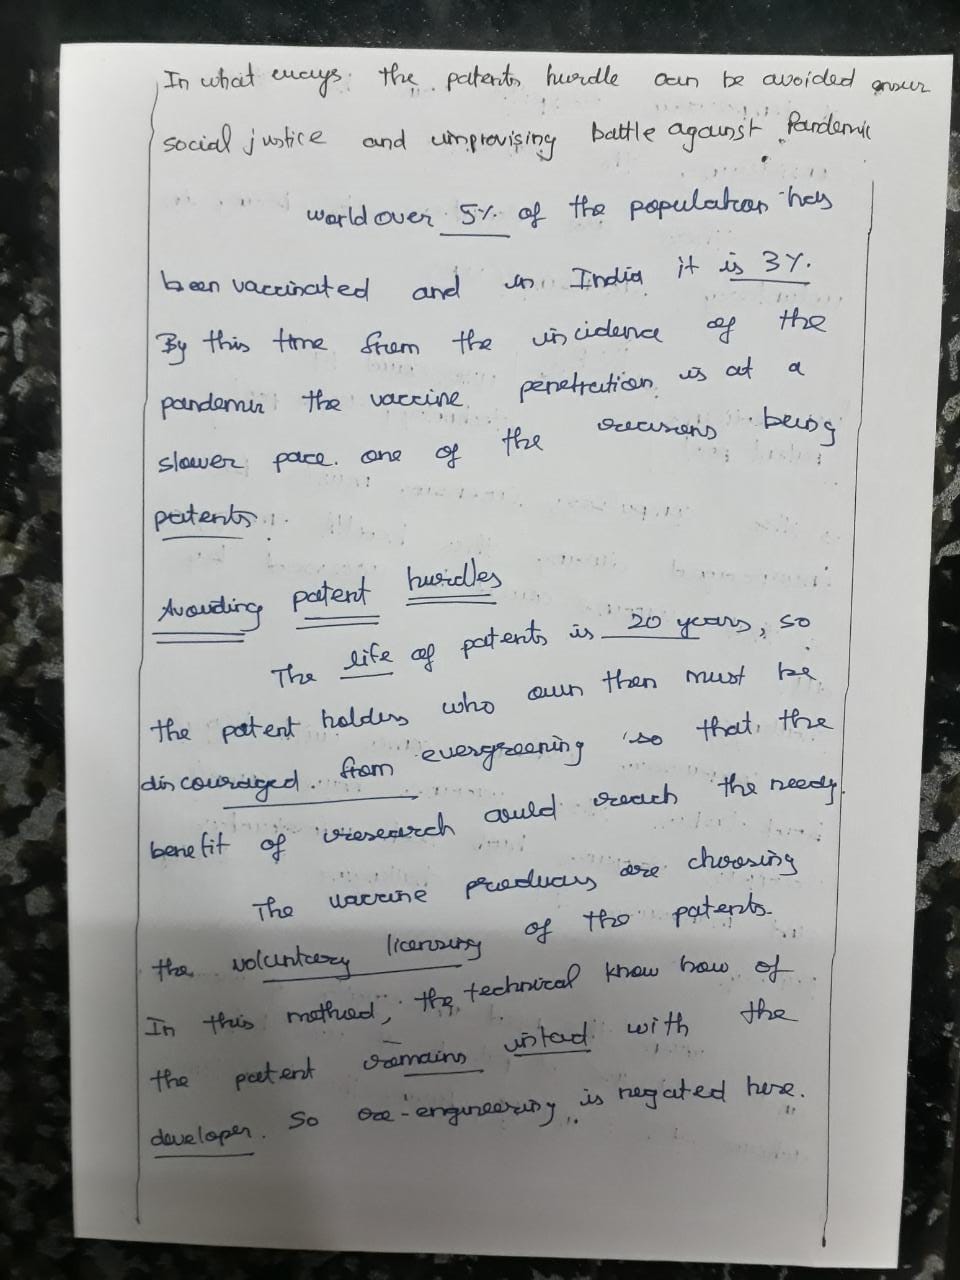 In what ways the patents hurdle can be avoided ensur
social justice and improvising battle against Pandemic
world over 5% of the population has
been vaccinated and in India it is 3%.
By this time from the incidence of the
pandemic the vaccine penetration is at a
slower pace. one of the reasons being
patents.
Avoiding patent hurdles
The life of patents is 20 years, so
the patent holders who own then must be
discouraged from evergreening so that the
benefit of research could reach the needy.
The vaccine producers are choosing
the voluntary licensing of the patents.
In this method, the technical know how of
the patent remains intact with the
developer. So re-engineering is negated here.